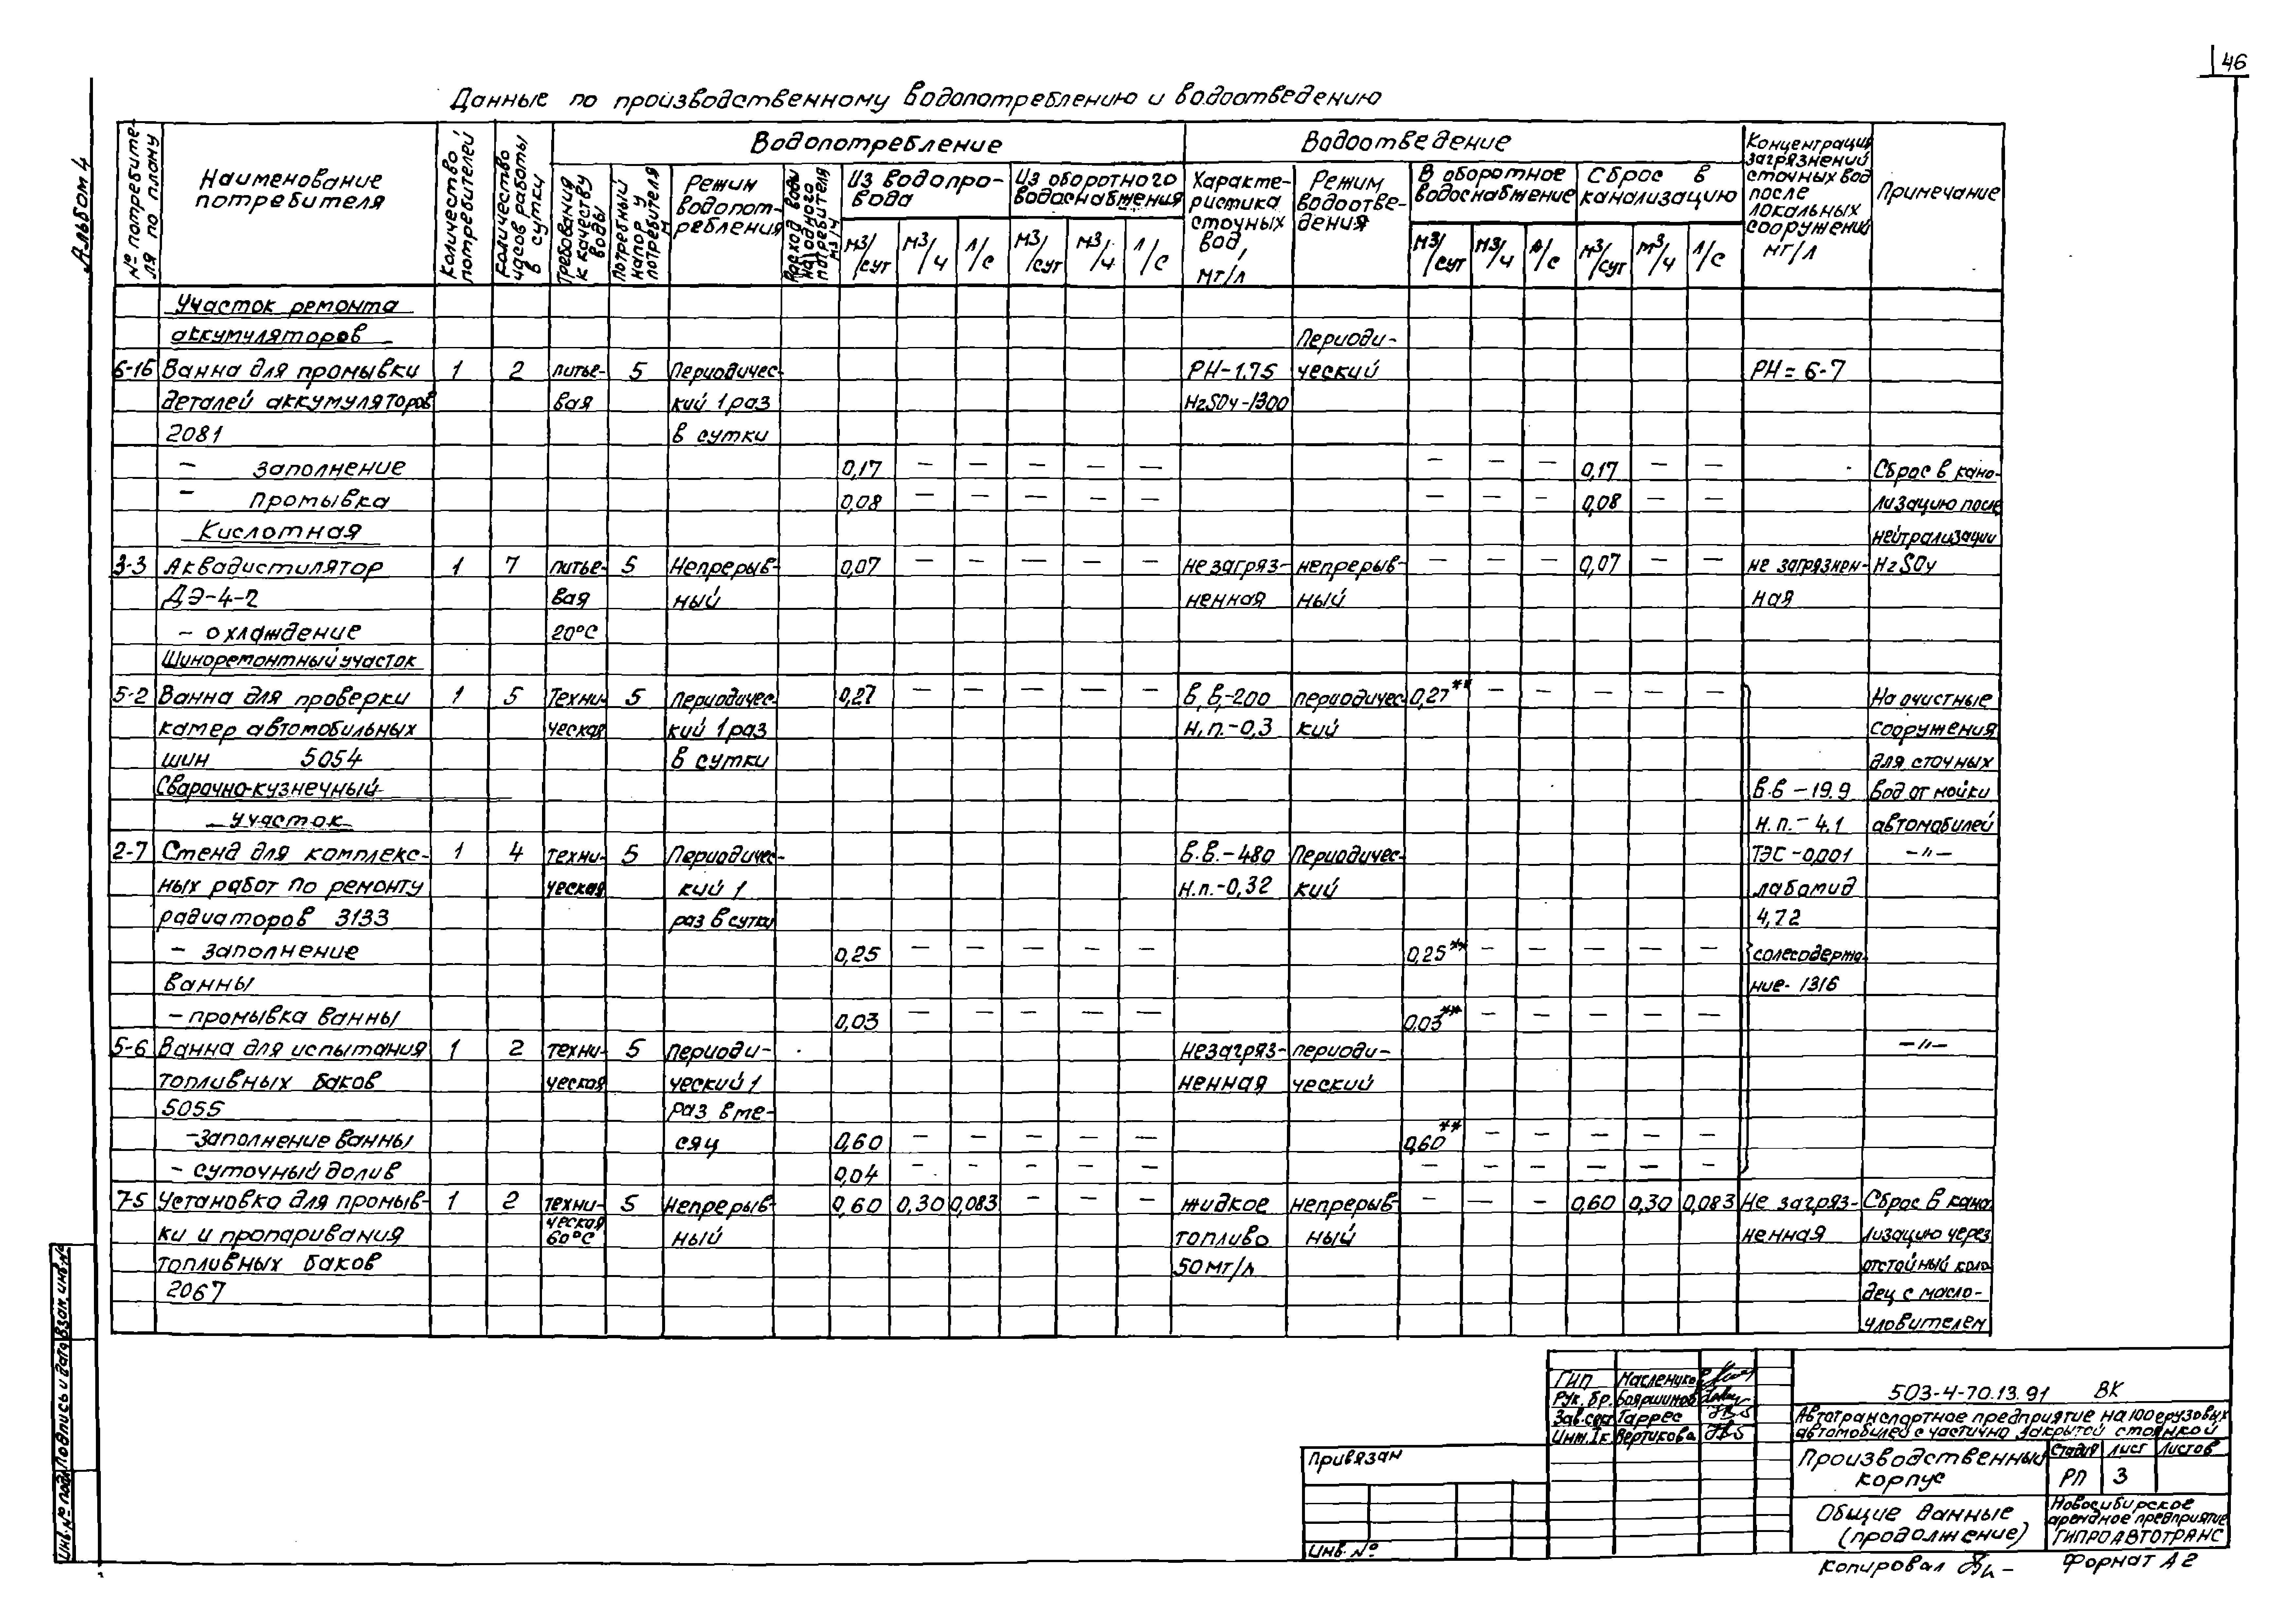 46
Альбом 4
Данные по производственному водопотреблению и водоотведению
№ потребителя по плану
Наименование потребителя
Количество потребителей
Количество часов работы в сутки
Водопотребление
Требования к качеству воды
Потребный напор у потребителя м
Режим водопотребления
Расход воды на одного потребителя м3/ч
Из водопровода
Из оборотного водоснабжения
м3/сут м3/ч л/с м3/сут м3/ч л/с
Водоотведение
Характеристика сточных вод, мг/л
Режим водоотведения
В оборотное водоснабжение
Сброс в канализацию
м3/сут м3/ч л/с м3/сут м3/ч л/с
Концентрация загрязнений сточных вод после локальных сооружений мг/л
Примечание
Участок ремонта
аккумуляторов Периоди-
6-16 Ванна для промывки 1 2 питье- 5 Периодичес- РН-1.75 ческий РН=6-7
деталей аккумуляторов вая кий 1 раз H2SO4-1300
2081 в сутки
- заполнение 0,17 — — — — — — — — 0,17 — — Сброс в кана-
- промывка 0,08 — — — — — — — — 0,08 — — лизацию после
Кислотная нейтрализации
3-3 Аквадистилятор 1 7 питье- 5 Непрерыв- 0,07 — — — — — незагряз- непрерыв- — — — 0,07 — — не загрязнен- H2SO4
ДЭ-4-2 вая ный ненная ный ная
- охлаждение 20°С
Шиноремонтный участок
5-2 Ванна для проверки 1 5 Техни- 5 Периодичес- 0,27 — — — — — В.В.-200 периодичес- 0,27** — — — — — На очистные
камер автомобильных ческая кий 1 раз Н.п.-0,3 кий сооружения
шин 5054 в сутки для сточных
Сварочно-кузнечный В.В-19.9 вод от мойки
участок Н.п.-4.1 автомобилей
2-7 Стенд для комплекс- 1 4 техни- 5 Периодичес- В.В.-480 Периодичес- ТЭС-0,001 -"-
ных работ по ремонту ческая кий 1 Н.п.-0,32 кий лабомид
радиаторов 3133 раз в сутки 4,72
- заполнение 0,25 — — — — — 0,25** — — — — — солесодержа-
ванны ние-1316
- промывка ванны 0,03 — — — — — 0,03** — — — — —
5-6 Ванна для испытания 1 2 техни- 5 периоди- незагряз- периоди- -"-
топливных баков ческая ческий 1 ненная ческий
5055 раз в ме-
-заполнение ванны сяц 0,60 — — — — — 0,60** — — — — —
- суточный долив 0,04 — — — — — — — — — — —
7-5 Установка для промыв- 1 2 техни- 5 Непрерыв- 0,60 0,30 0,083 — — — жидкое непрерыв- — — — 0,60 0,30 0,083 Не загряз- Сброс в кана-
ки и пропаривания ческая 60°С ный топливо ный ненная лизацию через
топливных баков 50мг/л отстойный коло-
2067 дец с масло-
уловителем
ГИП Маслеников
Рук. бр. Бояршинов
Зав. сек Таррес
Инж. Iк. Вертикова
503-4-70.13.91 ВК
Автотранспортное предприятие на 100 грузовых
автомобилей с частично закрытой стоянкой
Производственный корпус
Стадия Лист Листов
РП 3
Общие данные (продолжение)
Новосибирское арендное предприятие ГИПРОАВТОТРАНС
Привязан
Инв. №
Копировал
Формат А2
Инв. № подл. Подпись и дата Взам. инв. №